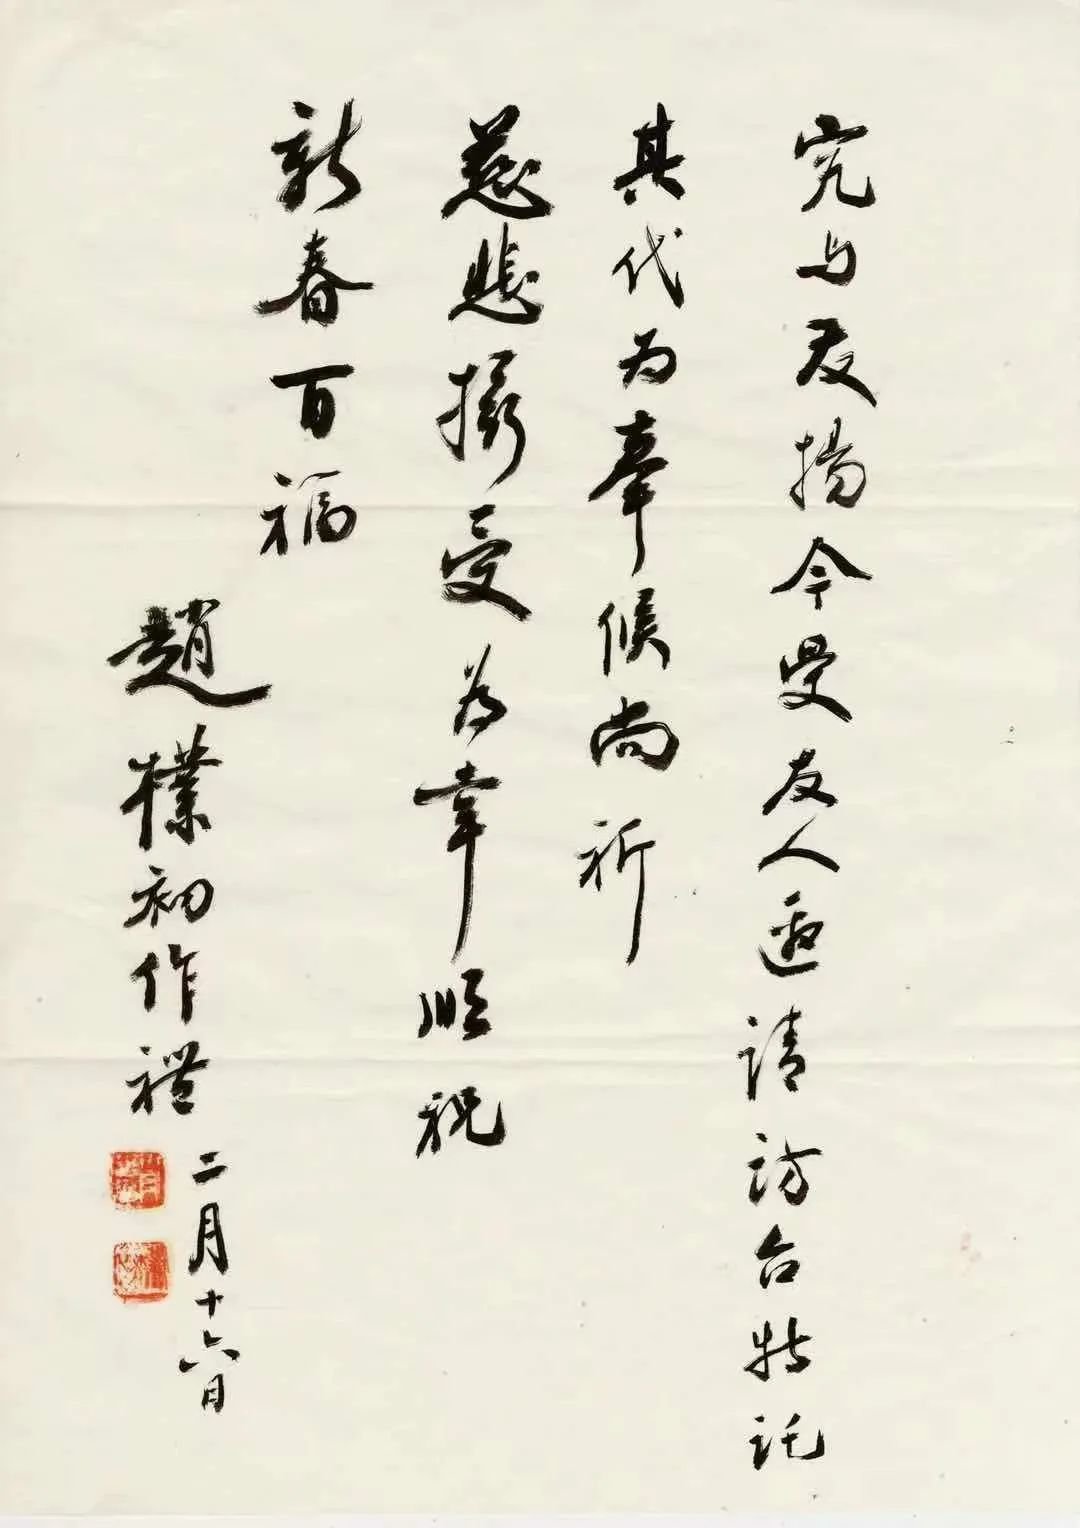 究与友扬今受友人邀请访台特託
其代为奉候尚祈
慈悲摄受为幸顺祝
新春百福
趙樸初作禮
二月十六日